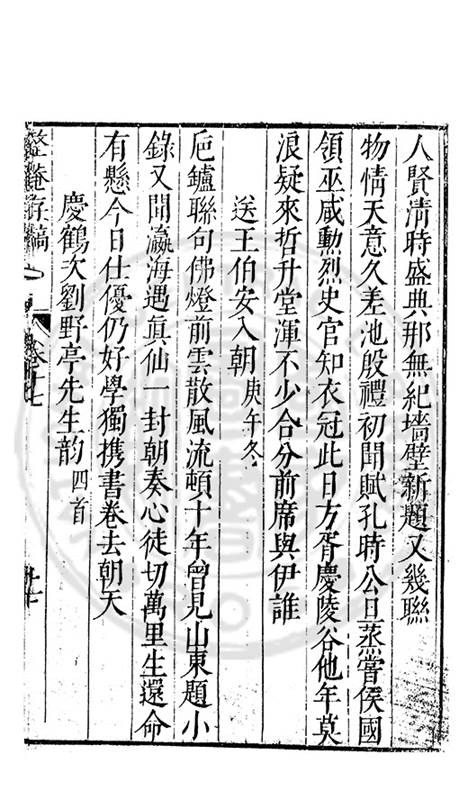 人賢清時盛典那無紀墻壁新題又幾聯
物情天意久差池殷禮初聞賦孔時公旦蒸嘗侯國
領巫咸勳烈史官知衣冠此日方胥慶陵谷他年莫
浪疑來哲升堂渾不少合分前席與伊誰
送王伯安入朝庚午冬
巵鑪聯句佛燈前雲散風流頓十年曾見山東題小
錄又聞瀛海遇真仙一封朝奏心徒切萬里生還命
有懸今日仕優仍好學獨携書卷去朝天
慶鶴次劉野亭先生韵四首
整庵存稿 卷十七 十七